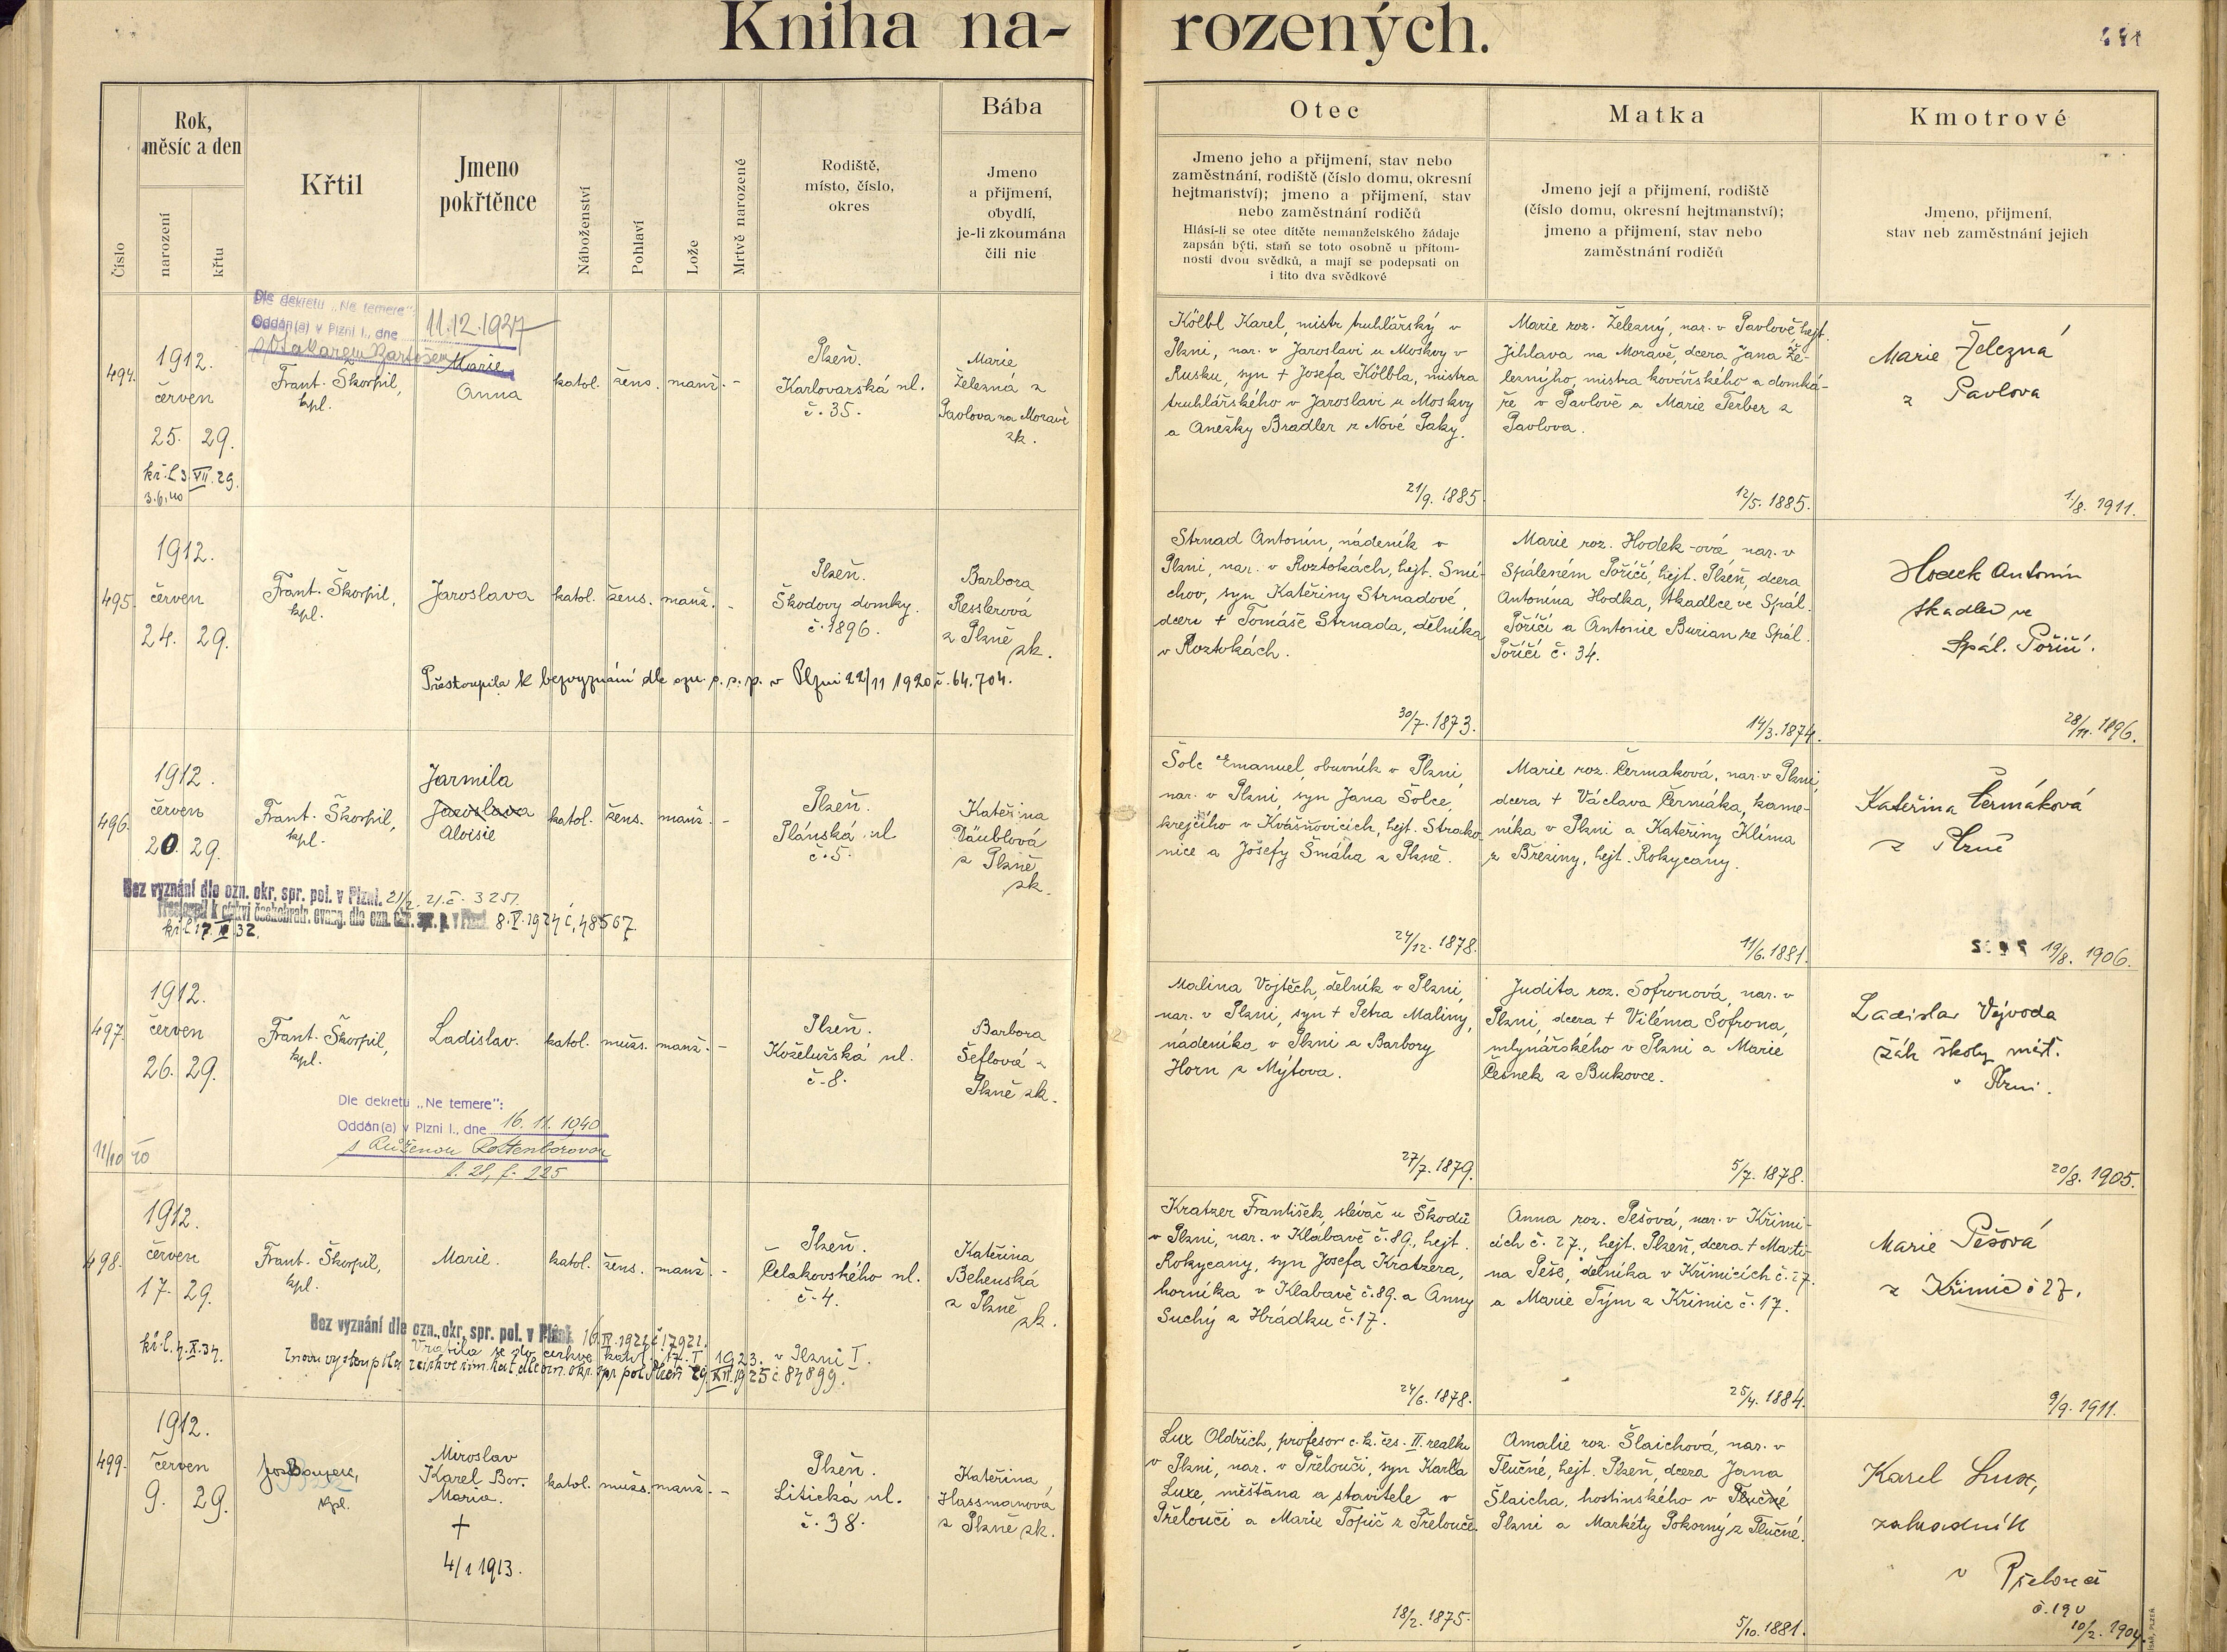 Kniha na-
rozených.
Číslo
Rok,
měsíc a den
narození
křtu
Křtil
Jmeno
pokřtěnce
Náboženství
Pohlaví
Lože
Mrtvě narozené
Rodiště,
místo, číslo,
okres
Bába
Jmeno
a přijmení,
obydlí,
je-li zkoumána
čili nic
Otec
Jmeno jeho a přijmení, stav nebo
zaměstnání, rodiště (číslo domu, okresní
hejtmanství); jmeno a přijmení, stav
nebo zaměstnání rodičů
Hlásí-li se otec dítěte nemanželského žádaje
zapsán býti, staň se toto osobně u přítom-
nosti dvou svědků, a mají se podepsati on
i tito dva svědkové
Matka
Jmeno její a přijmení, rodiště
(číslo domu, okresní hejtmanství);
jmeno a přijmení, stav nebo
zaměstnání rodičů
Kmotrové
Jmeno, přijmení,
stav neb zaměstnání jejich
Dle dekretu „Ne temere":
Oddán(a) v Plzni I., dne 11.12.1927
s Otakarem Bartošem
494.
1912.
červen
25. 29.
kř. l. 3. VII. 29.
3.6.40
Frant. Škorpil,
kpl.
Marie
Anna
katol. žens. manž. -
Plzeň.
Karlovarská ul.
č. 35.
Marie
Železná z
Pavlova na Moravě
zk.
Kölbl Karel, mistr truhlářský v
Plzni, nar. v Jaroslavi u Moskvy v
Rusku, syn + Josefa Kölbla, mistra
truhlářského v Jaroslavi u Moskvy
a Anežky Bradler z Nové Paky.
21/9. 1885.
Marie roz. Železný, nar. v Pavlově hejt.
Jihlava na Moravě, dcera Jana Že-
lezného, mistra kovářského a domká-
ře v Pavlově a Marie Ferber z
Pavlova.
12/5. 1885.
Marie Železná
z Pavlova
1./8. 1911.
495.
1912.
červen
24. 29.
Frant. Škorpil,
kpl.
Jaroslava
katol. žens. manž. -
Plzeň.
Škodovy domky.
č. 1896.
Barbora
Resslerová
z Plzně
zk.
Přestoupila k bezvyznání dle ozn. p. s. p. v Plzni 22/11 1920 č. 64.704.
Strnad Antonín, nádeník v
Plzni, nar. v Roztokách, hejt. Smí-
chov, syn Kateřiny Strnadové,
dceri + Tomáše Strnada, dělníka
v Roztokách.
30/7. 1873.
Marie roz. Hodek-ová, nar. v
Spáleném Poříčí, hejt. Plzeň, dcera
Antonína Hodka, tkadlce ve Spál.
Poříčí a Antonie Burian ze Spál.
Poříčí č. 34.
14/3. 1874.
Hodek Antonín
tkadlec ve
Spál. Poříčí.
28/11. 1896.
496.
1912.
červen
20. 29.
Frant. Škorpil,
kpl.
Jarmila
Jaroslava
Aloisie
katol. žens. manž. -
Plzeň.
Plánská ul.
č. 5.
Kateřina
Däublová
z Plzně
zk.
Bez vyznání dle ozn. okr. spr. pol. v Plzni. 21/2. 21. č. 3251.
Přestoupil k církvi českobratr. evang. dle ozn. okr. spr. p. v Plzni. 8.V.1924 č. 48567.
Šolc Emanuel, obuvník v Plzni,
nar. v Plzni, syn Jana Šolce,
krejčího v Kvášňovicích, hejt. Strako-
nice a Josefy Šmáha z Plzně.
24/12. 1878.
Marie roz. Čermaková, nar. v Plzni,
dcera + Václava Čermáka, kame-
níka v Plzni a Kateřiny Klíma
z Březiny, hejt. Rokycany.
11/6. 1881.
Kateřina Čermáková
z Plzně
19/8. 1906.
497.
1912.
červen
26. 29.
11/10 40
Frant. Škorpil,
kpl.
Ladislav.
katol. mužs. manž. -
Plzeň.
Koželužská ul.
č. 8.
Barbora
Šeflová z
Plzně zk.
Dle dekretu „Ne temere":
Oddán(a) v Plzni I., dne 16. 11. 1940
s Růženou Rottenborovou
t. 28, f. 225
Malina Vojtěch, dělník v Plzni,
nar. v Plzni, syn + Petra Maliny,
nádeníka v Plzni a Barbory
Horn z Mýtova.
27/7. 1879.
Judita roz. Sofronová, nar. v
Plzni, dcera + Viléma Sofrona,
mlynářského v Plzni a Marie
Česnek z Bukovce.
5/7. 1878.
Ladislav Vejvoda
žák školy měšť.
v Plzni.
20/8. 1905.
498.
1912.
červen
17. 29.
kř. l. 4. X. 34.
Frant. Škorpil,
kpl.
Marie.
katol. žens. manž. -
Plzeň.
Čelakovského ul.
č. 4.
Kateřina
Behenská
z Plzně
zk.
Bez vyznání dle ozn. okr. spr. pol. v Plzni 16.IV.1921 č. 17921.
Vrátila se do církve katol. 17. I. 1923. v Plzni I.
Znovu vystoupila z církve řím. kat. dle ozn. okr. spr. pol. Plzeň 29.XII.1925 č. 84899.
Kratzer František, slévač u Škodů
v Plzni, nar. v Klabavě č. 89., hejt.
Rokycany, syn Josefa Kratzera,
horníka v Klabavě č. 89. a Anny
Suchý z Hrádku č. 17.
24/6. 1878.
Anna roz. Pešová, nar. v Křimi-
cích č. 27., hejt. Plzeň, dcera + Marti-
na Peše, dělníka v Křimicích č. 27.
a Marie Tým z Křimic č. 17.
25/4. 1884.
Marie Pešová
z Křimic č 27.
9/9. 1911.
499.
1912.
červen
9. 29.
kpl.
Miroslav
Karel Bor.
Maria.
+
4/1 1913.
katol. mužs. manž. -
Plzeň.
Litická ul.
č. 38.
Kateřina
Hassmanová
z Plzně zk.
Lux Oldřich, profesor c. k. čes. II. realky
v Plzni, nar. v Přelouči, syn Karla
Luxe, měšťana a stavitele v
Přelouči a Marie Topič z Přelouče.
18/2. 1875.
Amalie roz. Šlaichová, nar. v
Tlučné, hejt. Plzeň, dcera Jana
Šlaicha, hostinského v Tlučné
Plzni a Markéty Pokorný z Tlučné.
5/10. 1881.
Karel Lux,
zahradník
v Přelouči
č. 190
10/2. 1904.